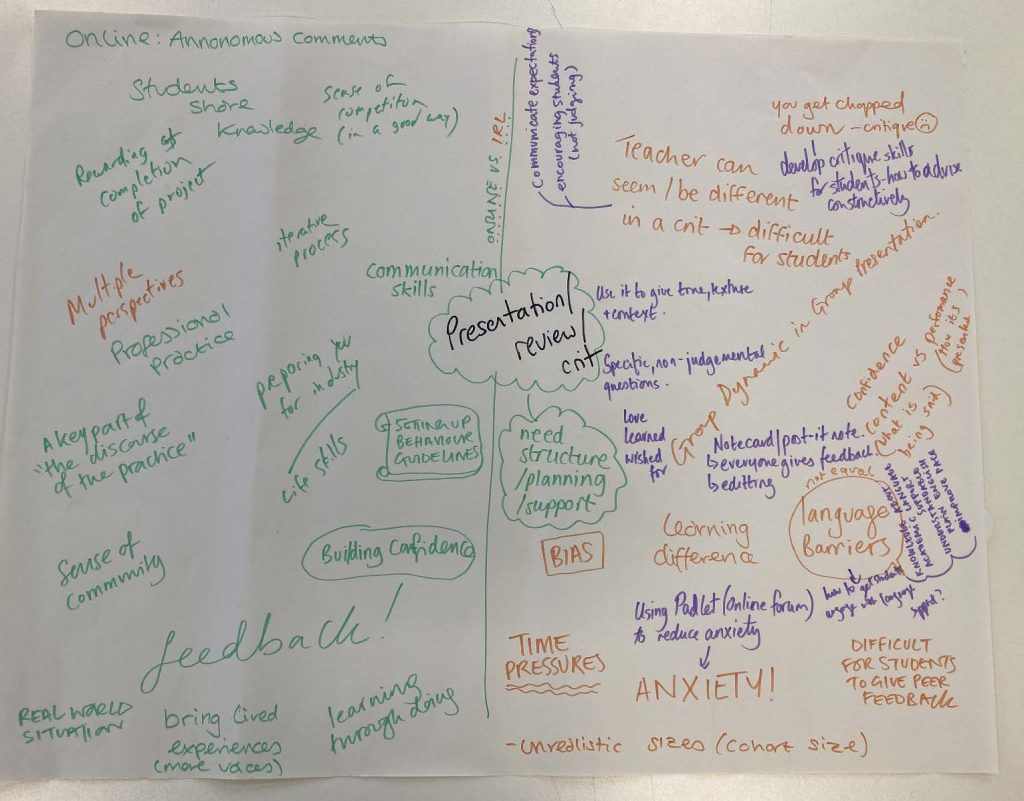 Online: Annonomous comments
Students
share
knowledge
sense of
competition
(in a good way)
Rewarding at
completion
of project
iterative
process
Multiple
perspectives
communication
skills
Professional
practice
preparing you
for industry
Life skills
A key part of
"the discourse
of the practice"
SETTING UP
BEHAVIOUR
GUIDELINES
Sense of
community
Building Confidence
feedback!
REAL WORLD
SITUATION
bring lived
experiences
(more voices)
learning
through doing
ONLINE VS IRL
Presentation/
review/
crit
need
structure
/planning
/support
Communicate expectations
encouraging students
(not judging)
Teacher can
seem/be different
in a crit → difficult
for students
you get chopped
down - critique
develop critique skills
for students - how to advise
constructively
Use it to give tone, texture
+ context.
Specific, non-judgemental
questions.
Love
learned
wished
for
Group Dynamic in Group Presentation.
Notecard/post-it note.
↳ everyone gives feedback
↳ editting
confidence
content vs performance
(what is
being said)
(How it's
presented)
not equal
language
Barriers
KNOWLEDGE ABOUT
ACADEMIC LANGUAGE
SUPPORT
UNDERSTANDABLE
PLAIN ENGLISH
IMPROVE PACE
how to get students
engage with language
support?
BIAS
Learning
difference
Using Padlet (Online forum)
to reduce anxiety
ANXIETY!
TIME
PRESSURES
DIFFICULT
FOR STUDENTS
TO GIVE PEER
FEEDBACK
- unrealistic sizes (cohort size)